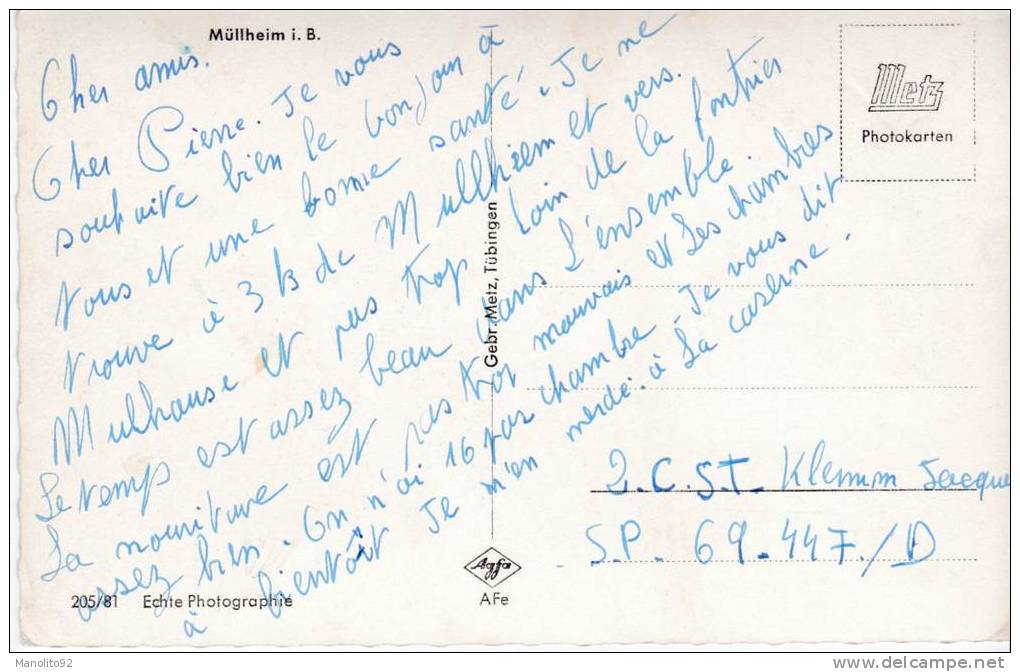 Müllheim i. B.
Cher amis.
Cher Pierre. Je vous
souhaite bien le bonjour à
tous et une bonne santé. Je ne
trouve à 3 k de Mullheim et vers.
Mulhouse et pas trop loin de la frontier
Le temp est assez beau dans L'ensemble.
La nouriture est pas trop mauvais et Les chambres
assez bien. On n'ai 16 par chambre. Je vous dit
à bientôt Je m'en merde. à La caserne.
Gebr. Metz, Tübingen
Metz
Photokarten
2.C.S.T. Klemm Jacque
S.P. 69.447./D
205/81 Echte Photographie
Agfa
AFe
Manolito92
www.delcampe.net